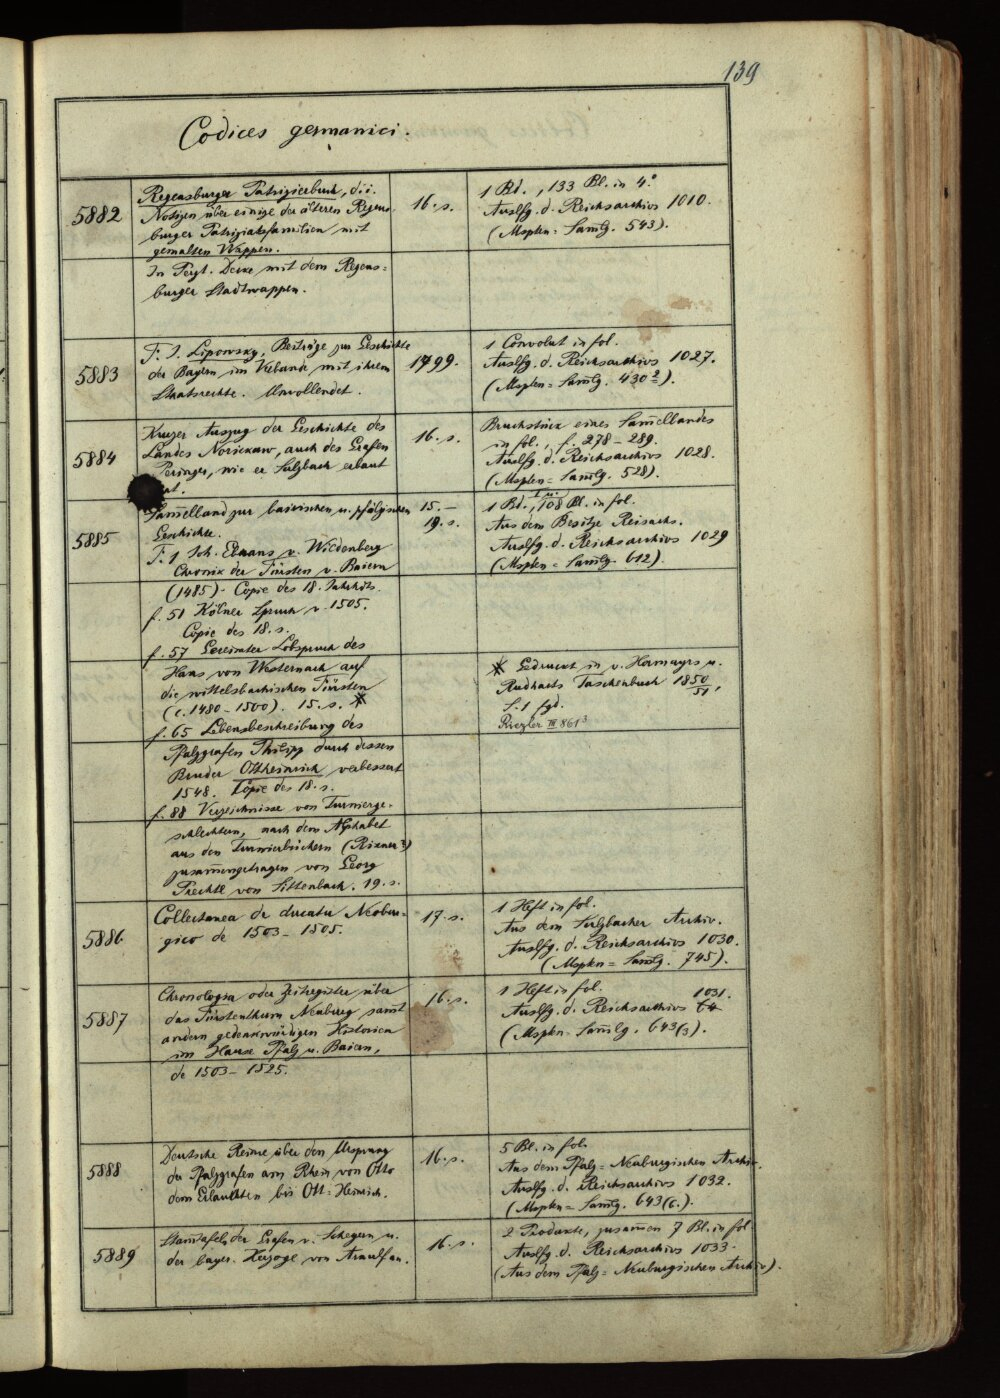 139
Codices germanici.
5882
Regensburger Patrizierbuch, d. i.
Notizen über einige der älteren Regens-
burger Patriziatsfamilien mit
gemalten Wappen.
In Pergt. Decke mit dem Regens-
burger Stadtwappen.
16. s.
1 Bd., 133 Bl. in 4°.
Auslfg. d. Reichsarchivs 1010.
(Mspten-Samlg. 543).
5883
F. J. Lipowsky, Beiträge zur Geschichte
der Bayern im Verbande mit ihrem
Staatsrechte. Unvollendet.
1799.
1 Convolut in fol.
Auslfg. d. Reichsarchivs 1027.
(Mspten-Samlg. 430 2).
5884
Kurzer Auszug der Geschichte des
Landes Norickaw, auch des Grafen
Peringer, wie er Sulzbach erbaut
hat.
16. s.
Bruchstück eines Sam̄elbandes
in fol., f. 278-289.
Auslfg. d. Reichsarchivs 1028.
(Mspten-Samlg. 528).
5885
Sam̄elband zur bairischen u. pfälzischen
Geschichte.
F. 1 Joh. Ebrans v. Wildenberg
Chronik der Fürsten v. Baiern
(1485). Copie des 18. Jahrhdts.
f. 51 Kölner Spruch v. 1505.
Copie des 18. s.
f. 57 Gereimter Lobspruch des
Hans von Westernach auf
die wittelsbachischen Fürsten
(c. 1480-1500). 15. s. *
f. 65 Lebensbeschreibung des
Pfalzgrafen Philipp durch dessen
Bruder Ottheinrich verbessert
1548. Copie des 18. s.
f. 88 Verzeichnisse von Turnierge-
schlechtern, nach dem Alphabet
aus den Turnierbüchern (Rixner?)
zusam̄engetragen von Georg
Prechtl von Sittenbach. 19. s.
15.-
19. s.
1 Bd., 108 Bl. in fol.
Aus dem Besitze Reisachs.
Auslfg. d. Reichsarchivs 1029
(Mspten-Samlg. 612).
* Gedruckt in v. Hormayrs u.
Rudharts Taschenbuch 1850/51,
S. 1 fgd.
Riezler III 861³
5886
Collectanea de ducatu Neobur-
gico de 1503-1505.
17. s.
1 Heft in fol.
Aus dem Sulzbacher Archiv.
Auslfg. d. Reichsarchivs 1030.
(Mspten-Samlg. 745).
5887
Chronologia oder Zeitregister über
das Fürstenthum Neuburg samt
andern gedenkwürdigen Historien
im Hause Pfalz u. Baiern,
de 1503-1525.
16. s.
1 Heft in fol.
1031.
Auslfg. d. Reichsarchivs 64
(Mspten-Sam̄lg. 643(3).
5888
Deutsche Reime über den Ursprung
der Pfalzgrafen am Rhein von Otto
dem Erlauchten bis Ott-Heinrich.
16. s.
5 Bl. in fol.
Aus dem Pfalz-Neuburgischen Archiv.
Auslfg. d. Reichsarchivs 1032.
(Mspten-Samlg. 643(c.).
5889
Stam̄tafeln der Grafen v. Scheyern u.
der bayer. Herzoge von Arnulf an.
16. s.
2 Produkte, zusam̄en 7 Bl. in fol.
Auslfg. d. Reichsarchivs 1033.
(Aus dem Pfalz-Neuburgischen Archiv).